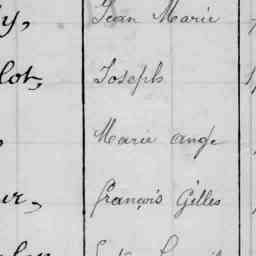 y, Jean Marie
lot, Joseph
, Marie ange
ur, François Gilles